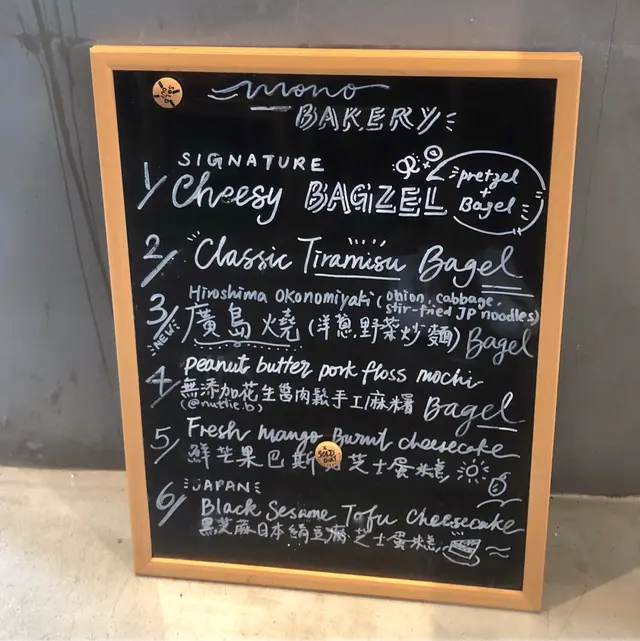 mono
BAKERY
SIGNATURE
1/ Cheesy BAGZEL
pretzel
+
Bagel
2/ Classic Tiramisu Bagel
3/ Hiroshima Okonomiyaki (onion, cabbage,
stir-fried JP noodles)
NEW
廣島燒 (洋蔥,野菜炒麵) Bagel
4/ peanut butter pork floss mochi
無添加花生醬肉鬆手工麻糬 Bagel
(@nuttie.b)
5/ Fresh Mango Burnt cheesecake
鮮芒果巴斯 芝士蛋糕
SOLD OUT
JAPAN
6/ Black Sesame Tofu Cheesecake
黑芝麻日本絹豆腐芝士蛋糕